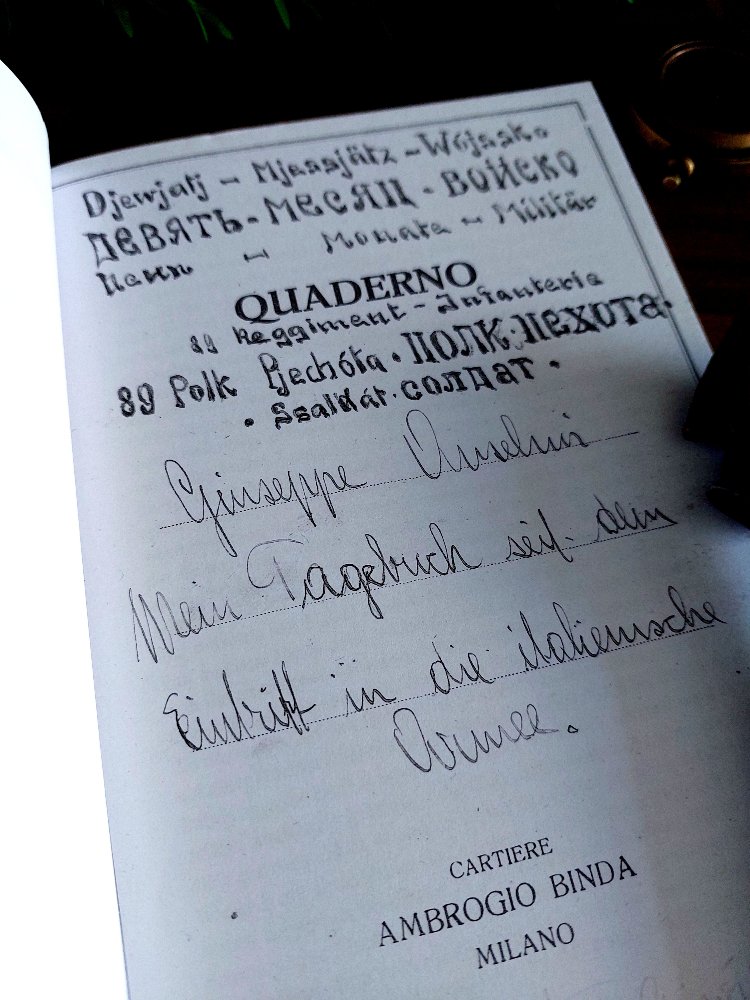 Djewjatj - Mjassjätz - Wójasko
ДЕВЯТЬ - МЕСЯЦ - ВОЙСКО
Neun - Monate - Militär
QUADERNO
89 Reggiment - Infanterie
89 Polk Pjechóta · ПОЛК · ПЕХОТА ·
· Ssaldát · СОЛДАТ ·
Giuseppe Anselmi
Mein Tagebuch seit dem
Eintritt in die italienische
Armee.
CARTIERE
AMBROGIO BINDA
MILANO